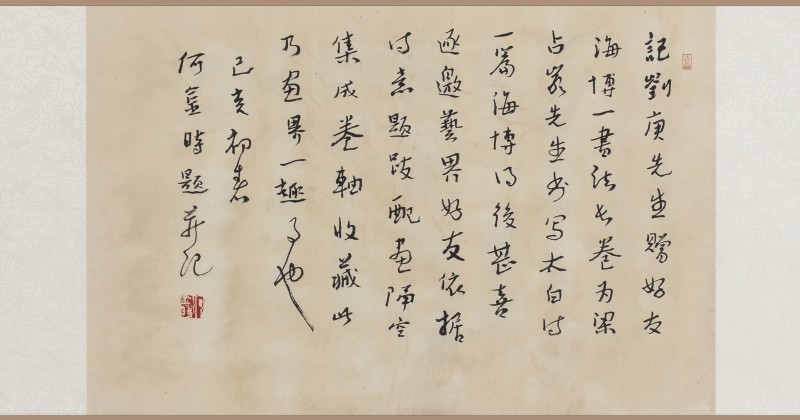 記劉庚先生贈好友
海博一書法长卷为梁
占先生书写太白诗
一篇海博得後甚喜
遂邀藝界好友依据
诗意題跋配画隔空
集成卷軸收藏此
乃画界一趣事也
己亥初春
何時題并记